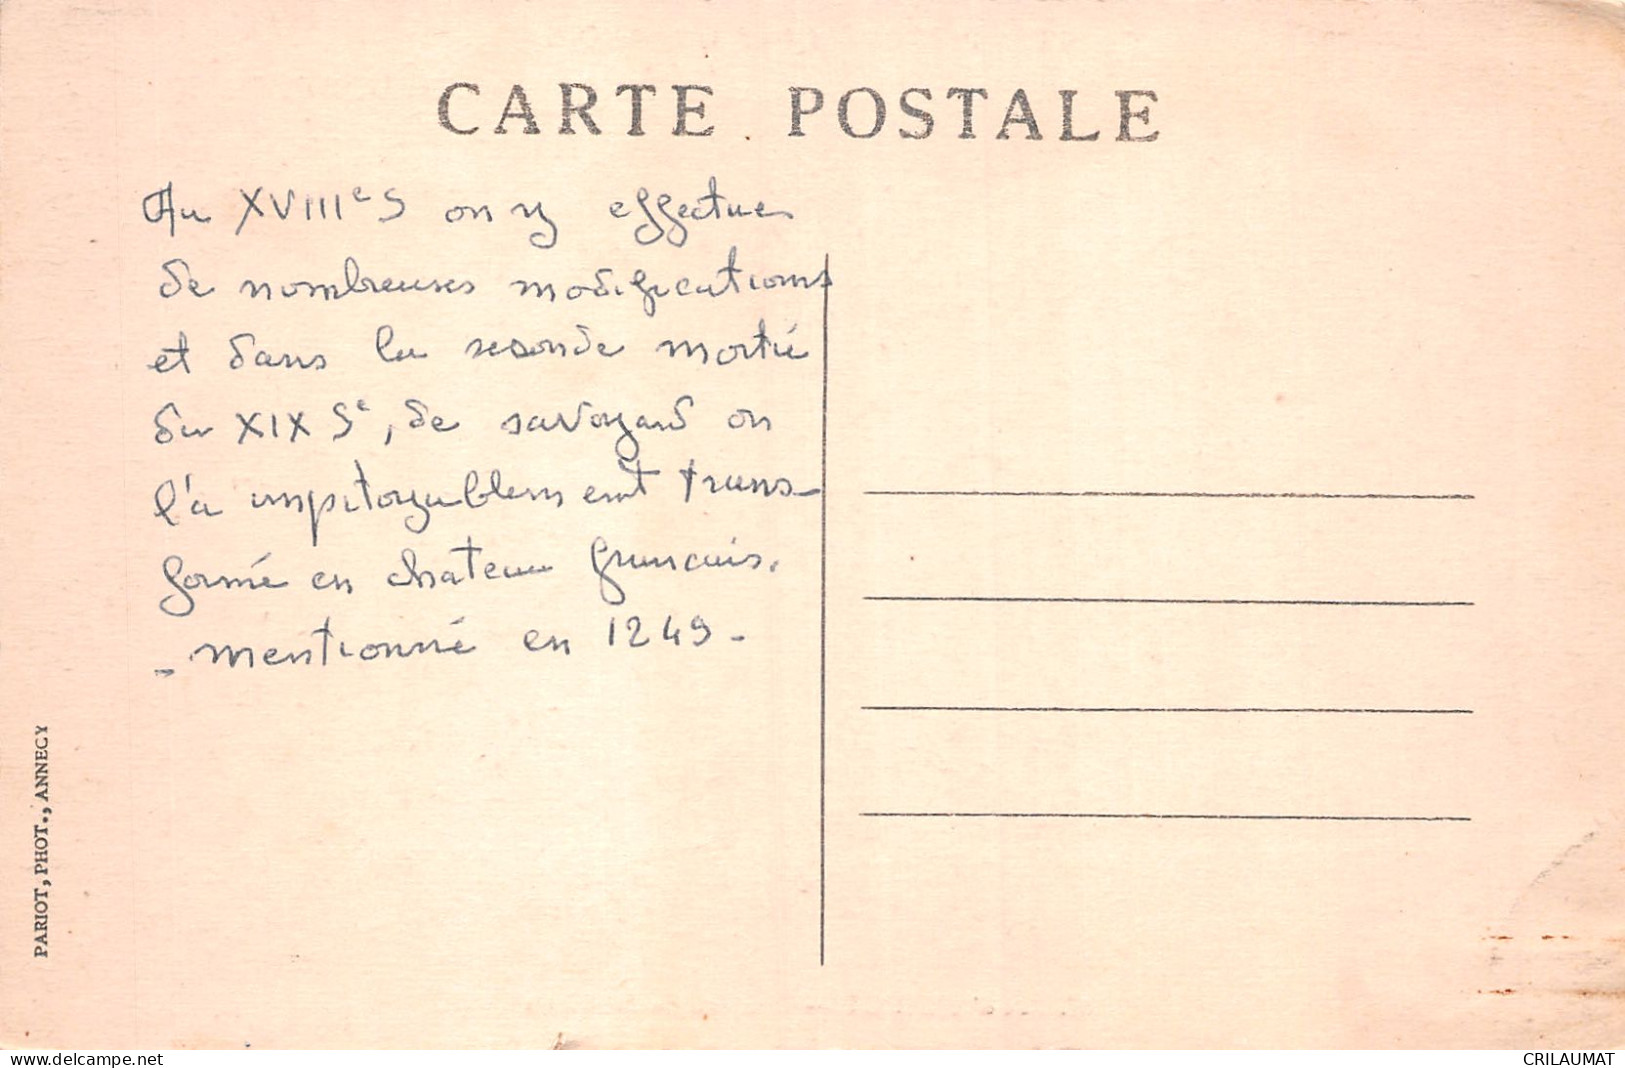 CARTE POSTALE
Au XVIIIe S on y effectue
de nombreuses modifications
et dans la seconde moitié
du XIX Se, de savoyard on
l'a impitoyablement trans-
formé en chateau français.
- mentionné en 1249 -
PARIOT, PHOT., ANNECY
www.delcampe.net
CRILAUMAT